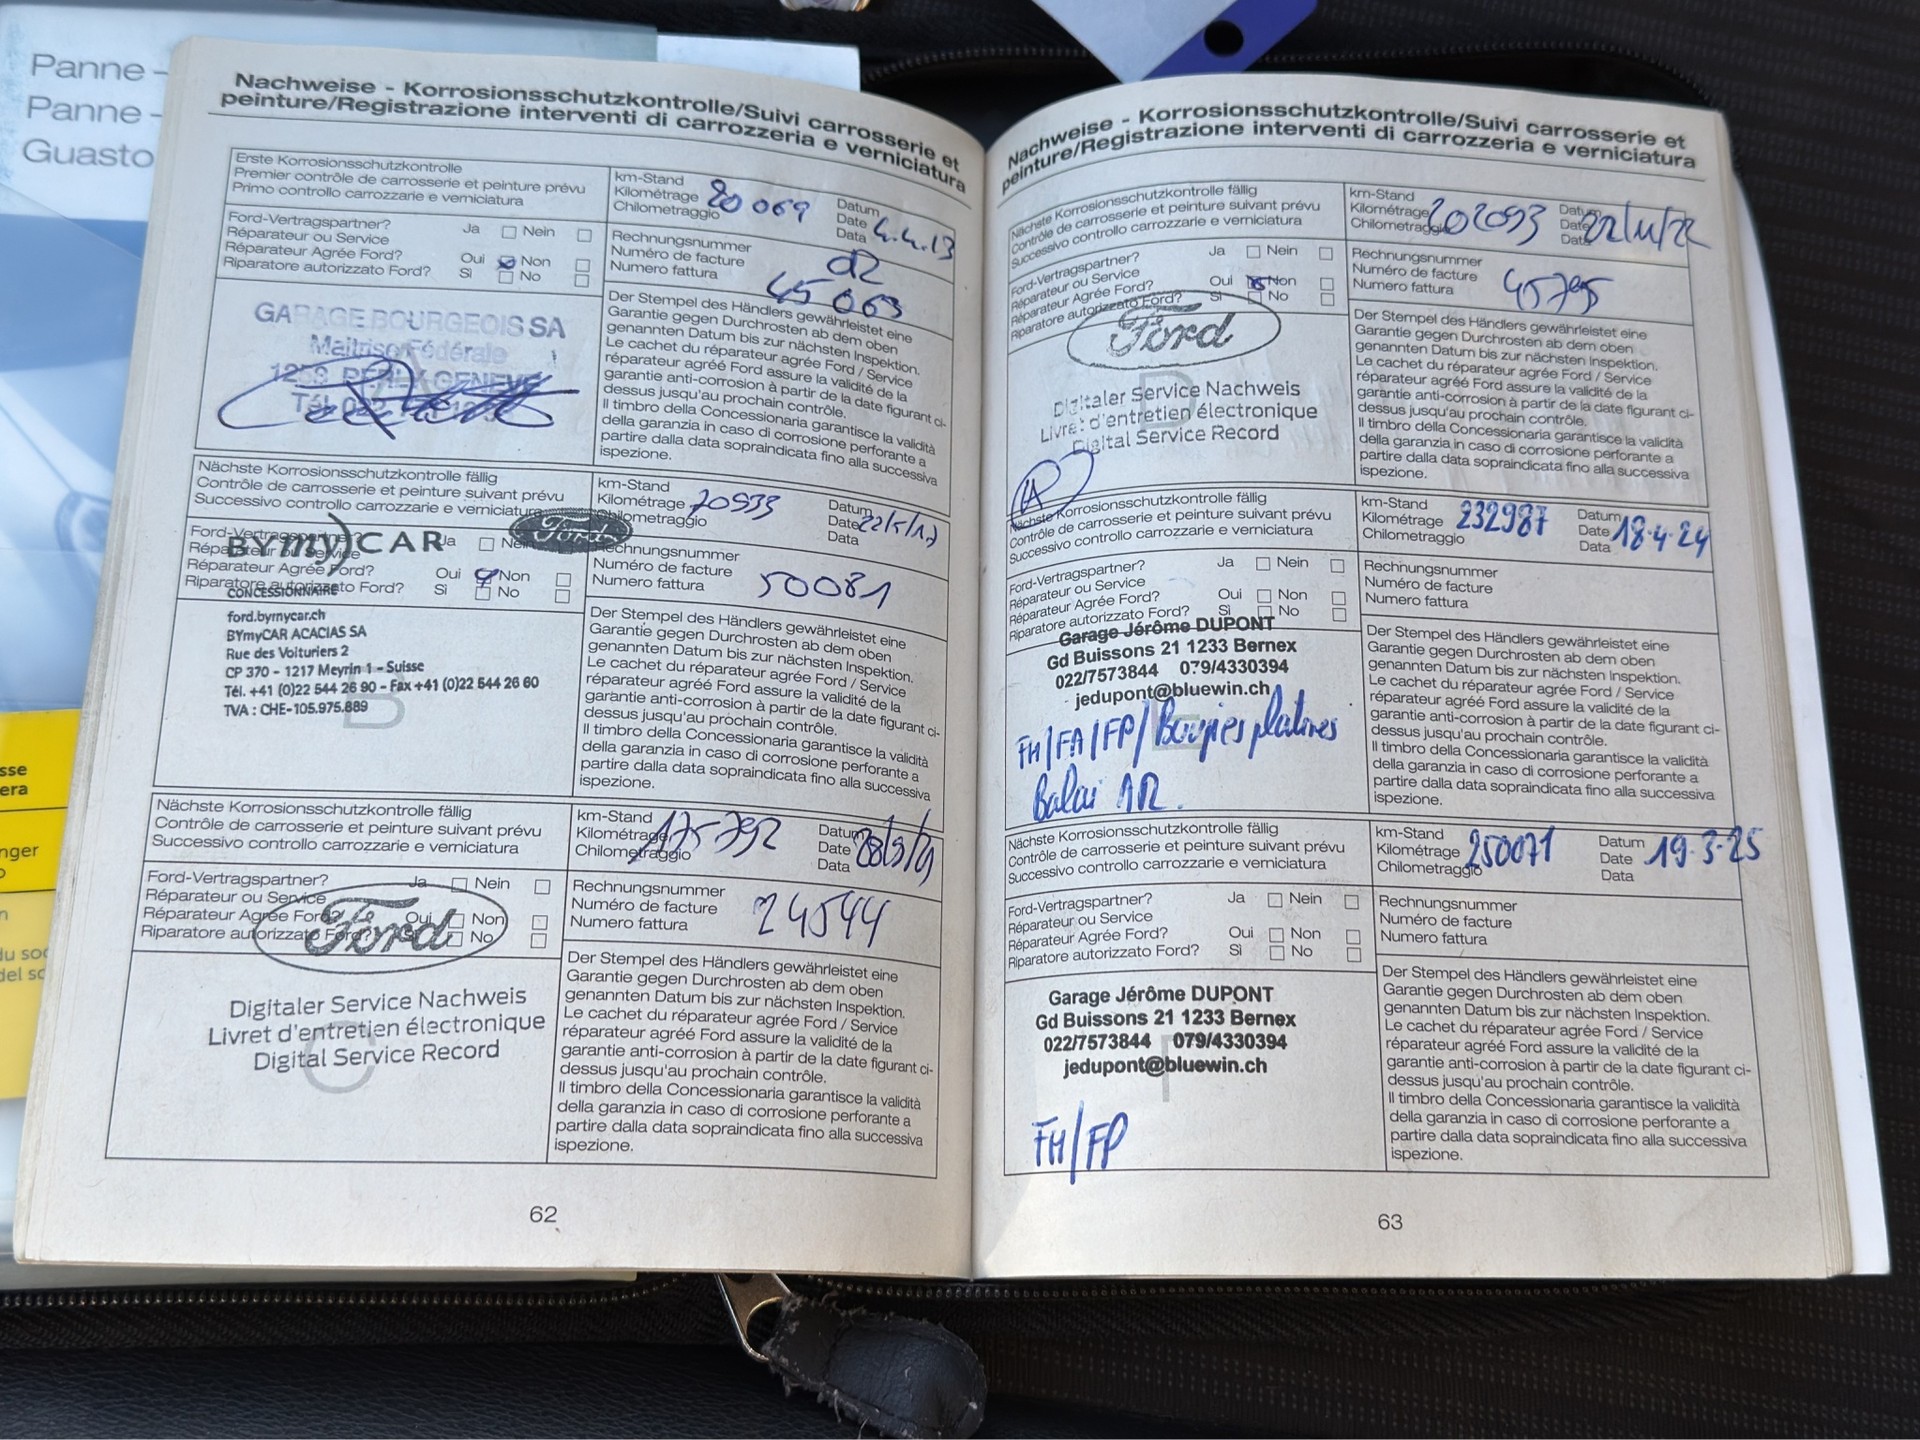 Panne -
Panne -
Guasto
sse
era
nger
du soc
del sc
Nachweise - Korrosionsschutzkontrolle/Suivi carrosserie et
peinture/Registrazione interventi di carrozzeria e verniciatura
Erste Korrosionsschutzkontrolle
Premier contrôle de carrosserie et peinture prévu
Primo controllo carrozzarie e verniciatura
km-Stand
Kilométrage 20 069
Chilometraggio
Datum
Date 4.4.13
Data
Ford-Vertragspartner? Ja Nein
Réparateur ou Service
Réparateur Agrée Ford? Oui Non
Riparatore autorizzato Ford? Sì No
Rechnungsnummer
Numéro de facture
Numero fattura
45 063
GARAGE BOURGEOIS SA
Maîtrise Fédérale
1258 PERLY GENEVE
Der Stempel des Händlers gewährleistet eine
Garantie gegen Durchrosten ab dem oben
genannten Datum bis zur nächsten Inspektion.
Le cachet du réparateur agrée Ford / Service
réparateur agréé Ford assure la validité de la
garantie anti-corrosion à partir de la date figurant ci-
dessus jusqu'au prochain contrôle.
Il timbro della Concessionaria garantisce la validità
della garanzia in caso di corrosione perforante a
partire dalla data sopraindicata fino alla successiva
ispezione.
Nächste Korrosionsschutzkontrolle fällig
Contrôle de carrosserie et peinture suivant prévu
Successivo controllo carrozzarie e verniciatura
km-Stand
Kilométrage 70933
Chilometraggio
Datum
Date 22/5/17
Data
Ford-Vertragspartner? Ja Nein
Réparateur ou Service
Réparateur Agrée Ford? Oui Non
Riparatore autorizzato Ford? Sì No
BYmy)CAR
Ford
CONCESSIONNAIRE
Rechnungsnummer
Numéro de facture
Numero fattura
50081
ford.bymycar.ch
BYmyCAR ACACIAS SA
Rue des Voituriers 2
CP 370 - 1217 Meyrin 1 - Suisse
Tél. +41 (0)22 544 26 90 - Fax +41 (0)22 544 26 60
TVA : CHE-105.975.889
B
Der Stempel des Händlers gewährleistet eine
Garantie gegen Durchrosten ab dem oben
genannten Datum bis zur nächsten Inspektion.
Le cachet du réparateur agrée Ford / Service
réparateur agréé Ford assure la validité de la
garantie anti-corrosion à partir de la date figurant ci-
dessus jusqu'au prochain contrôle.
Il timbro della Concessionaria garantisce la validità
della garanzia in caso di corrosione perforante a
partire dalla data sopraindicata fino alla successiva
ispezione.
Nächste Korrosionsschutzkontrolle fällig
Contrôle de carrosserie et peinture suivant prévu
Successivo controllo carrozzarie e verniciatura
km-Stand
Kilométrage 175792
Chilometraggio
Datum
Date
Data
Ford-Vertragspartner? Ja Nein
Réparateur ou Service
Réparateur Agrée Ford? Oui Non
Riparatore autorizzato Ford? Sì No
Ford
Rechnungsnummer
Numéro de facture
Numero fattura
24544
Digitaler Service Nachweis
Livret d'entretien électronique
Digital Service Record
C
Der Stempel des Händlers gewährleistet eine
Garantie gegen Durchrosten ab dem oben
genannten Datum bis zur nächsten Inspektion.
Le cachet du réparateur agrée Ford / Service
réparateur agréé Ford assure la validité de la
garantie anti-corrosion à partir de la date figurant ci-
dessus jusqu'au prochain contrôle.
Il timbro della Concessionaria garantisce la validità
della garanzia in caso di corrosione perforante a
partire dalla data sopraindicata fino alla successiva
ispezione.
62
Nachweise - Korrosionsschutzkontrolle/Suivi carrosserie et
peinture/Registrazione interventi di carrozzeria e verniciatura
Nächste Korrosionsschutzkontrolle fällig
Contrôle de carrosserie et peinture suivant prévu
Successivo controllo carrozzarie e verniciatura
km-Stand
Kilométrage 202093
Chilometraggio
Datum
Date 22/11/22
Data
Ford-Vertragspartner? Ja Nein
Réparateur ou Service
Réparateur Agrée Ford? Oui Non
Riparatore autorizzato Ford? Sì No
Ford
Rechnungsnummer
Numéro de facture
Numero fattura
45795
Digitaler Service Nachweis
Livret d'entretien électronique
Digital Service Record
D
Der Stempel des Händlers gewährleistet eine
Garantie gegen Durchrosten ab dem oben
genannten Datum bis zur nächsten Inspektion.
Le cachet du réparateur agrée Ford / Service
réparateur agréé Ford assure la validité de la
garantie anti-corrosion à partir de la date figurant ci-
dessus jusqu'au prochain contrôle.
Il timbro della Concessionaria garantisce la validità
della garanzia in caso di corrosione perforante a
partire dalla data sopraindicata fino alla successiva
ispezione.
Nächste Korrosionsschutzkontrolle fällig
Contrôle de carrosserie et peinture suivant prévu
Successivo controllo carrozzarie e verniciatura
km-Stand
Kilométrage 232987
Chilometraggio
Datum
Date 18.4.24
Data
Ford-Vertragspartner? Ja Nein
Réparateur ou Service
Réparateur Agrée Ford? Oui Non
Riparatore autorizzato Ford? Sì No
Rechnungsnummer
Numéro de facture
Numero fattura
Garage Jérôme DUPONT
Gd Buissons 21 1233 Bernex
022/7573844 079/4330394
jedupont@bluewin.ch
FH/FA/FP/ Bougies platines
Balai AR.
Der Stempel des Händlers gewährleistet eine
Garantie gegen Durchrosten ab dem oben
genannten Datum bis zur nächsten Inspektion.
Le cachet du réparateur agrée Ford / Service
réparateur agréé Ford assure la validité de la
garantie anti-corrosion à partir de la date figurant ci-
dessus jusqu'au prochain contrôle.
Il timbro della Concessionaria garantisce la validità
della garanzia in caso di corrosione perforante a
partire dalla data sopraindicata fino alla successiva
ispezione.
Nächste Korrosionsschutzkontrolle fällig
Contrôle de carrosserie et peinture suivant prévu
Successivo controllo carrozzarie e verniciatura
km-Stand
Kilométrage 250071
Chilometraggio
Datum
Date 19.3.25
Data
Ford-Vertragspartner? Ja Nein
Réparateur ou Service
Réparateur Agrée Ford? Oui Non
Riparatore autorizzato Ford? Sì No
Rechnungsnummer
Numéro de facture
Numero fattura
Garage Jérôme DUPONT
Gd Buissons 21 1233 Bernex
022/7573844 079/4330394
jedupont@bluewin.ch
FH/FP
Der Stempel des Händlers gewährleistet eine
Garantie gegen Durchrosten ab dem oben
genannten Datum bis zur nächsten Inspektion.
Le cachet du réparateur agrée Ford / Service
réparateur agréé Ford assure la validité de la
garantie anti-corrosion à partir de la date figurant ci-
dessus jusqu'au prochain contrôle.
Il timbro della Concessionaria garantisce la validità
della garanzia in caso di corrosione perforante a
partire dalla data sopraindicata fino alla successiva
ispezione.
63